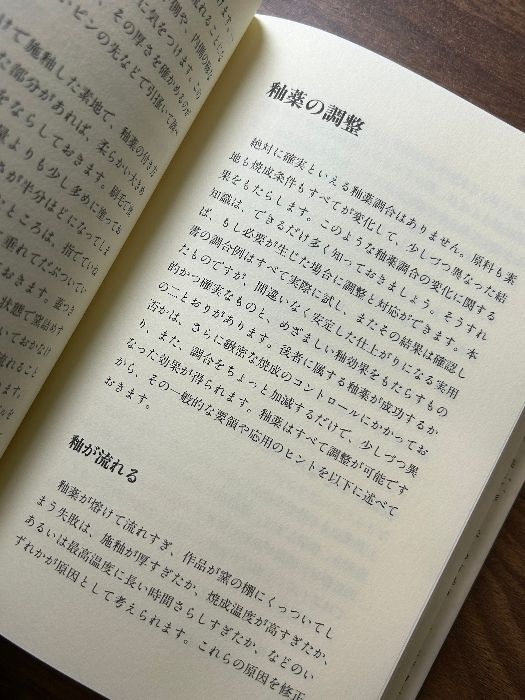 流れることにな
側や、内側の極な
に気をつけます。この
、その厚さを確かめるのが
ピンの先などで引掻いて薄へ
けて施釉した素地で、釉薬の付き方
た部分があれば、柔らかい大きめ
をならしておきます。刷毛で塗
よりも少し多めに塗っても
さが半分ほどになってしま
ところは、指でていね
垂れてだぶついてい
おきます。釜つき
状態で窯詰めす
いておかなけ
流れること
ります。
釉薬の調整
絶対に確実といえる釉薬調合はありません。原料も素
地も焼成条件もすべてが変化して、少しづつ異なった結
果をもたらします。このような釉薬調合の変化に関する
知識は、できるだけ多く知っておきましょう。そうすれ
ば、もし必要が生じた場合に調整と対応ができます。本
書の調合例はすべて実際に試し、またその結果は確認し
たものですが、間違いなく安定した仕上がりになる実用
的かつ確実なものと、めざましい釉効果をもたらすもの
の二とおりがあります。後者に属する釉薬が成功するか
否かは、さらに厳密な焼成のコントロールにかかってお
り、また、調合をちょっと加減するだけで、少しづつ異
なった効果が得られます。釉薬はすべて調整が可能です
から、その一般的な要領や応用のヒントを以下に述べて
おきます。
釉が流れる
釉薬が熔けて流れすぎ、作品が窯の棚にくっついてし
まう失敗は、施釉が厚すぎたか、焼成温度が高すぎたか、
あるいは最高温度に長い時間さらしすぎたか、などのい
ずれかが原因として考えられます。これらの原因を修正